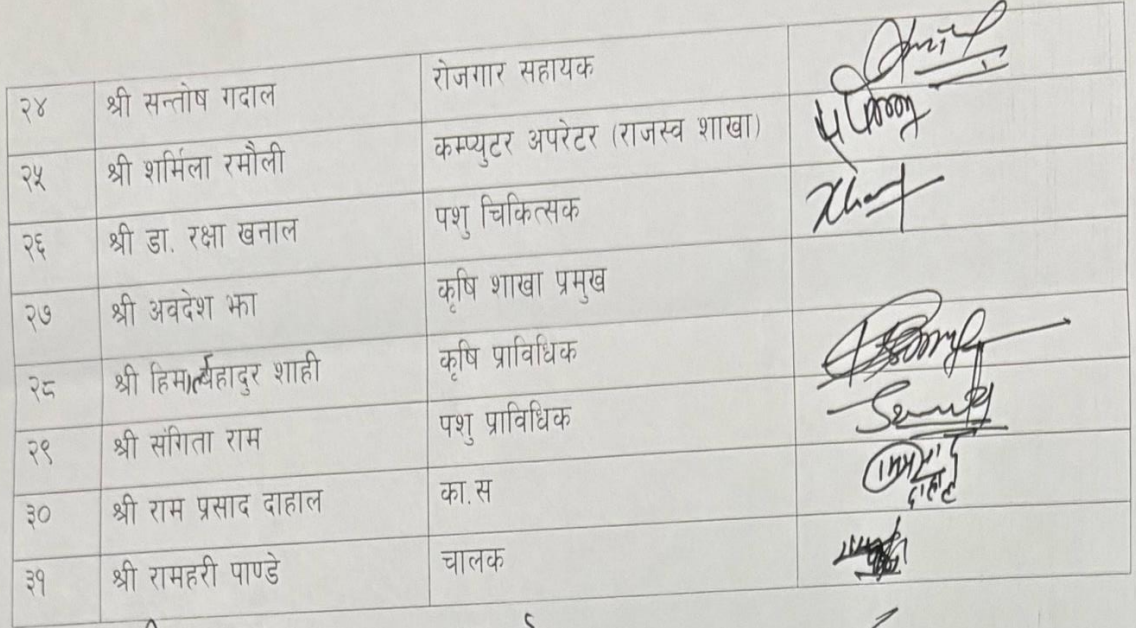 २४ श्री सन्तोष गदाल रोजगार सहायक
२५ श्री शर्मिला रमौली कम्प्युटर अपरेटर (राजस्व शाखा)
२६ श्री डा. रक्षा खनाल पशु चिकित्सक
२७ श्री अवदेश झा कृषि शाखा प्रमुख
२८ श्री हिमालबहादुर शाही कृषि प्राविधिक
२९ श्री संगिता राम पशु प्राविधिक
३० श्री राम प्रसाद दाहाल का.स
३१ श्री रामहरी पाण्डे चालक